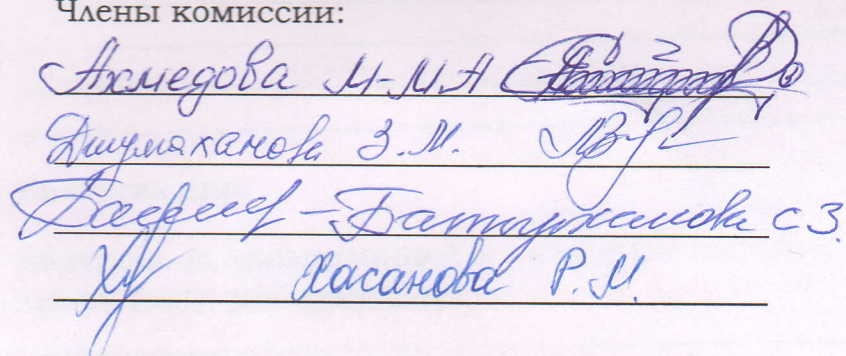 Члены комиссии:
Ахмедова М-МА
Джумаханова З.М.
Батырханова С З.
Хасанова Р. М.